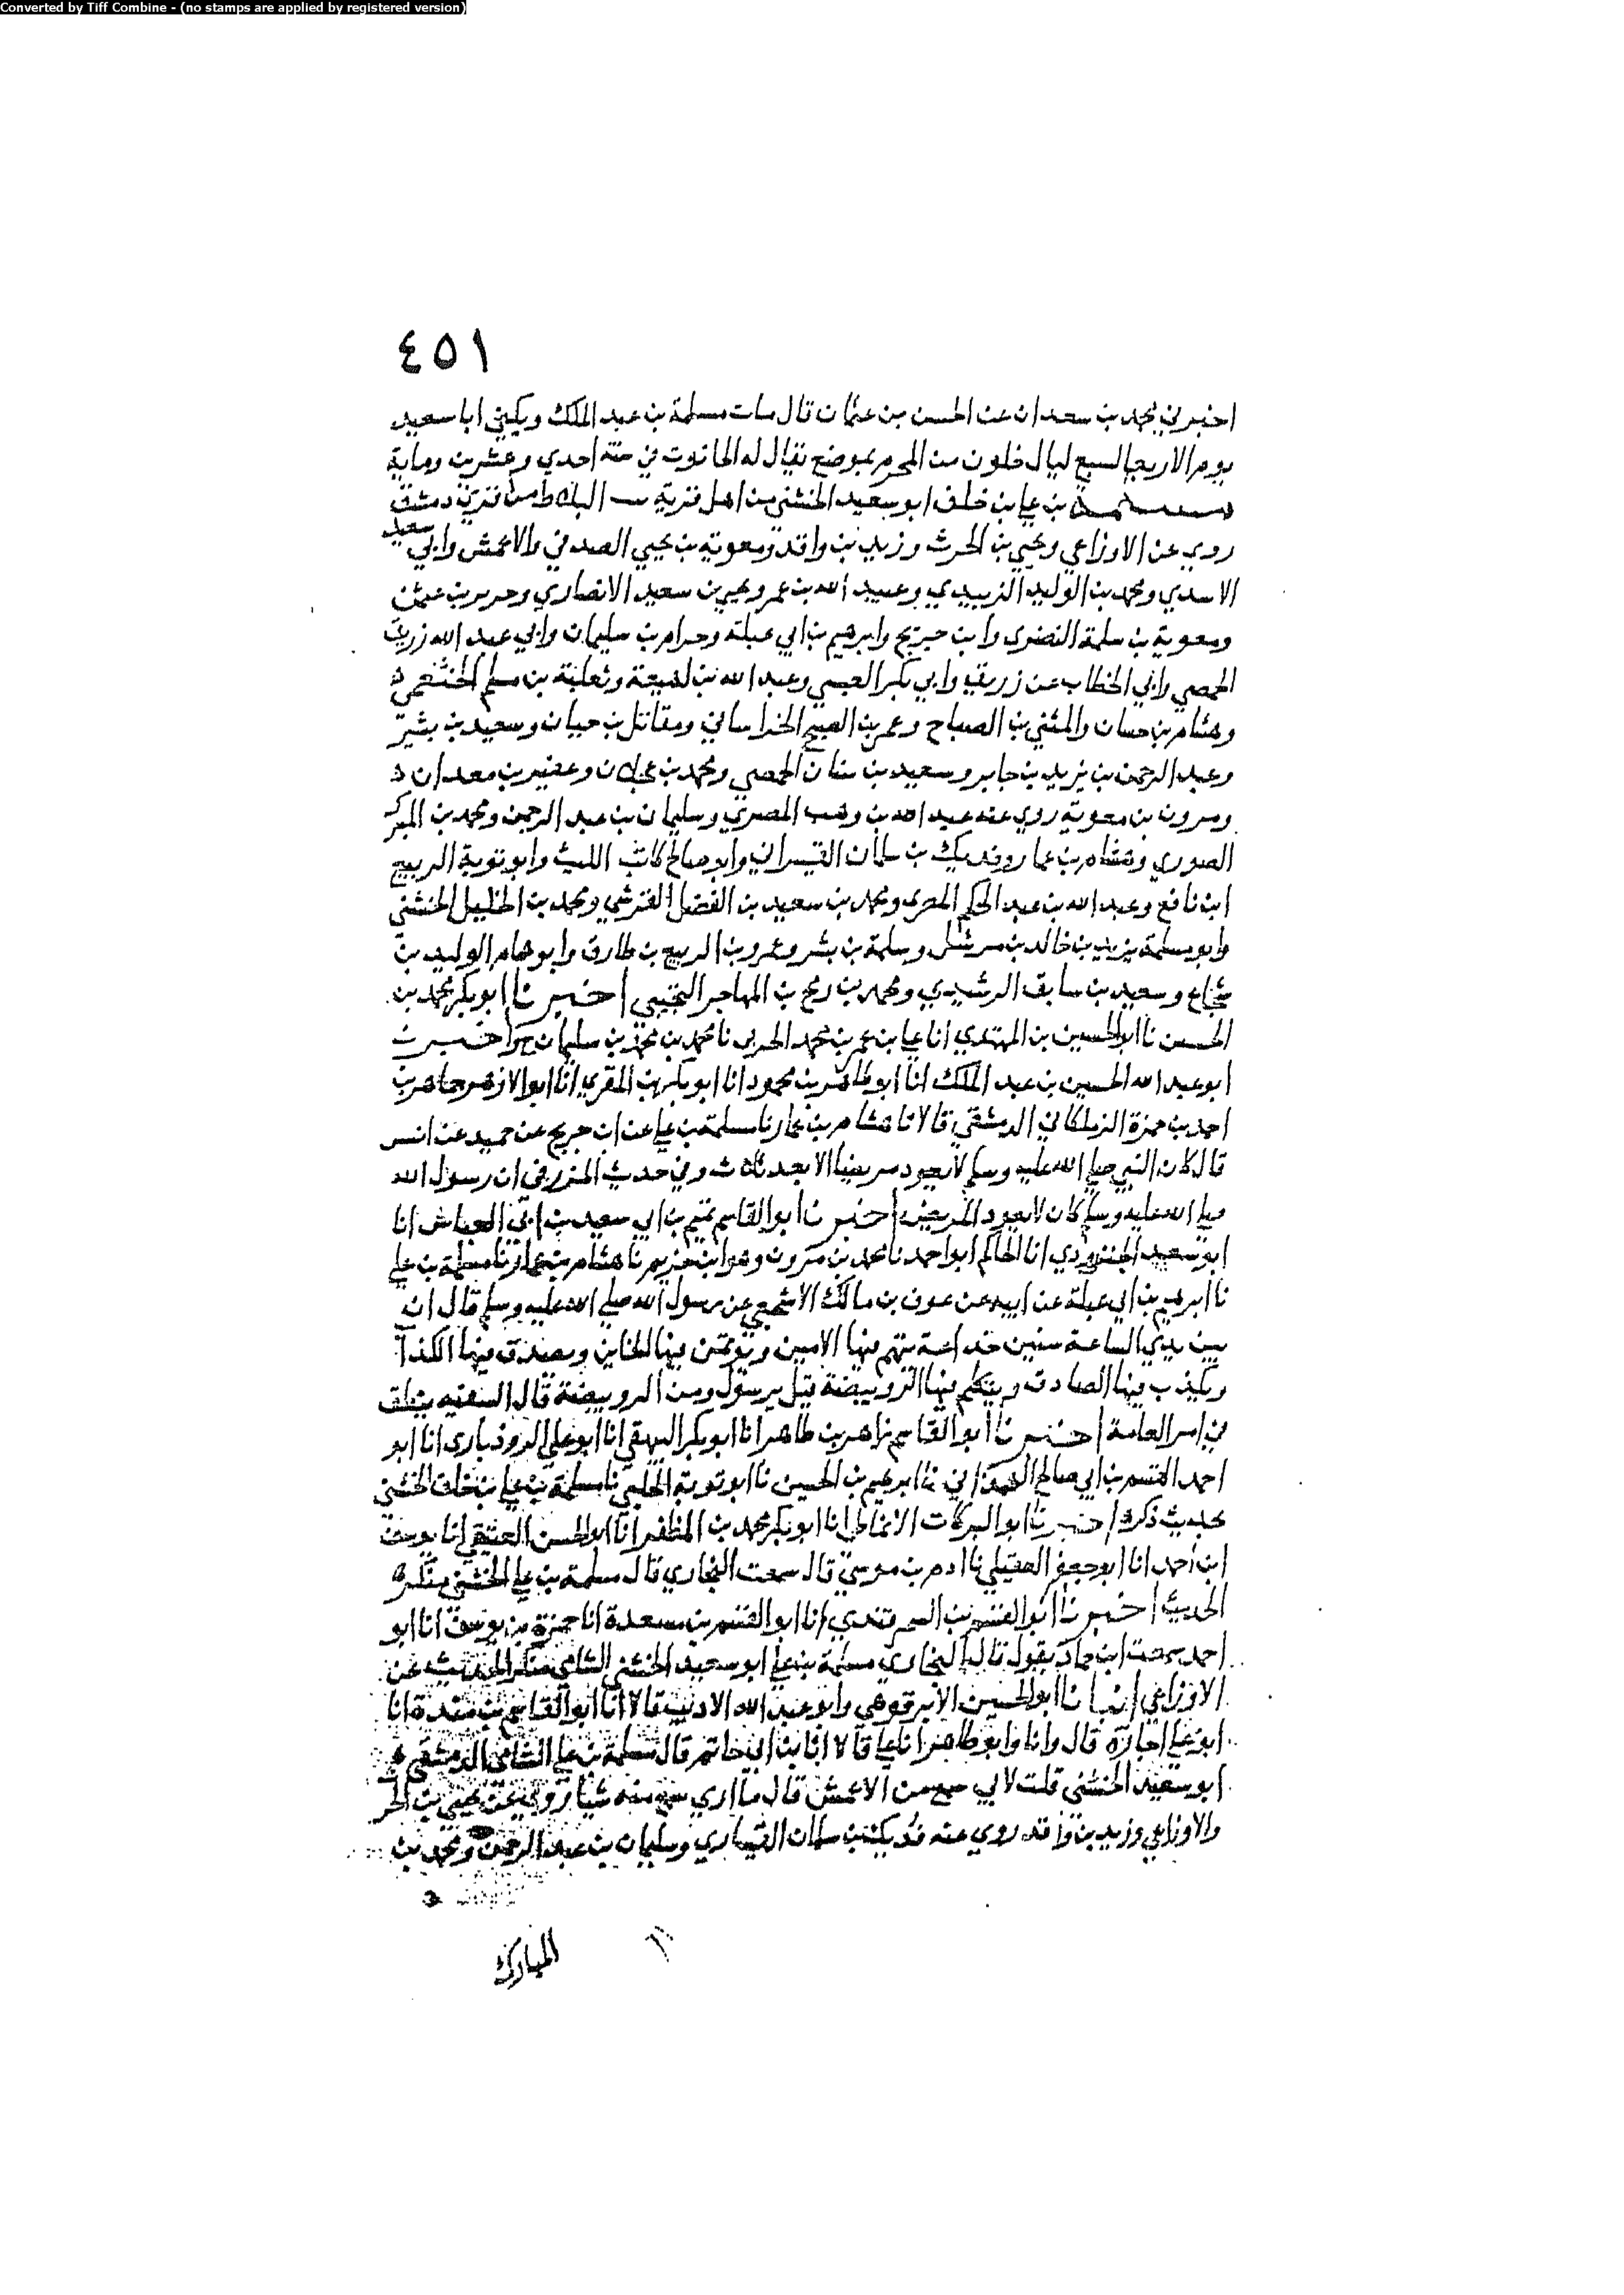 Converted by Tiff Combine - (no stamps are applied by registered version)
٤٥١
اخبرني محمد بن سعدان عن الحسن بن عثمان قال مات مسلمة بن عبد الملك ويكنى ابا سعيد
يوم الاربعا لسبع ليال خلون من المحرم بموضع يقال له الحانوت في سنة احدي وعشرين وماية
مسلمة بن علي بن خلف ابو سعيد الخشني من اهل قرية البلاط من قري دمشق
روي عن الاوزاعي ويحيي بن الحرث وزيد بن واقد ومعوية بن يحيي الصدفي والاعمش وابي سعيد
الاسدي ومحمد بن الوليد الزبيدي وعبيد الله بن عمر ويحيي بن سعيد الانصاري وحريز بن عثمن
ومعوية بن سلمة النضري وابن جريج وابرهيم بن ابي عبلة وحرام بن سليمان وابي عبد الله زريق
الحمصي وابي الخطاب عن زريق وابي بكر العبسي وعبد الله بن لهيعة وثعلبة بن مسلم الخثعمي
وهشام بن حسان والمثني بن الصباح وعمر بن الصبح الخراساني ومقاتل بن حيان وسعيد بن بشير
وعبد الرحمن بن يزيد بن جابر وسعيد بن سنان الحمصي ومحمد بن عجلان وعفير بن معدان
ومرون بن معوية روي عنه عبد الله بن وهب المصري وسليمان بن عبد الرحمن ومحمد بن المبرك
الصوري وهشام بن عمار وفديك بن سلمان القيسراني وابو صالح كاتب الليث وابو توبة الربيع
ابن نافع وعبد الله بن عبد الحكم المصري ومحمد بن سعيد بن الفضل القرشي ومحمد بن الخليل الخشني
وابو مسلمة يزيد بن خالد بن مرشل وسلمة بن بشر وعمرو بن الربيع بن طارق وابو همام الوليد بن
شجاع وسعيد بن سابق الرشيدي ومحمد بن رمح بن المهاجر التجيبي اخبرنا ابو بكر محمد بن
الحسين نا ابو الحسين بن المهتدي انا علي بن عمر بن محمد الحربي نا محمد بن محمد بن سليمان ح واخبرنا
ابو عبد الله الحسين بن عبد الملك انا ابو طاهر بن محمود انا ابو بكر بن المقري انا ابو الازهر جماهر بن
احمد بن حمزة الزملكاني الدمشقي قالا نا هشام بن عمار نا مسلمة بن علي عن ابن جريج عن حميد عن انس
قال كان النبي صلي الله عليه وسلم لا يعود مريضا الا بعد ثلاث وفي حديث المزرفي ان رسول الله
صلي الله عليه وسلم كان لا يعود المريض اخبرنا ابو القاسم تميم بن ابي سعيد بن ابي العباس انا
ابو سعيد الجنزرودي انا الحاكم ابو احمد نا محمد بن مرون وهو ابن خزيم نا هشام بن عمار نا مسلمة بن علي
نا ابرهيم بن ابي عبلة عن ابيه عن عوف بن مالك الاشجعي عن رسول الله صلي الله عليه وسلم قال ان
بين يدي الساعة سنين خداعة يتهم فيها الامين ويؤتمن فيها الخاين ويصدق فيها الكذاب
ويكذب فيها الصادق ويتكلم فيها الرويبضة قيل يرسول ومن الرويبضة قال السفيه ينطق
في امر العامة اخبرنا ابو القاسم زاهر بن طاهر انا ابو بكر البيهقي انا ابو علي الروذباري انا ابو
احمد القسم بن ابي صالح الهمذاني نا ابرهيم بن الحسين نا ابو توبة الحلبي نا مسلمة بن علي بن خلف الخشني
بحديث ذكره اخبرنا ابو البركات الانماطي انا ابو بكر محمد بن المظفر انا ابو الحسن العتيقي انا يوسف
ابن احمد انا ابو جعفر العقيلي نا ادم بن موسي قال سمعت البخاري قال مسلمة بن علي الخشني منكر
الحديث اخبرنا ابو القسم بن السمرقندي انا ابو القسم بن مسعدة انا حمزة بن يوسف انا ابو
احمد سمعت ابن حماد يقول قال البخاري مسلمة بن علي ابو سعيد الخشني الشامي منكر الحديث عن
الاوزاعي انبانا ابو الحسين الابرقوهي وابو عبد الله الاديب قالا انا ابو القاسم بن مندة انا
ابو علي اجازة قال وانا ابو طاهر انا علي قالا انا بن ابي حاتم قال مسلمة بن علي الشامي الدمشقي
ابو سعيد الخشني قلت لابي سمع من الاعمش قال ما اري سمع منه شيا روي عن يحيي بن الحرث
والاوزاعي وزيد بن واقد روي عنه فديك بن سلمان القيساري وسليمان بن عبد الرحمن ومحمد بن
المبارك